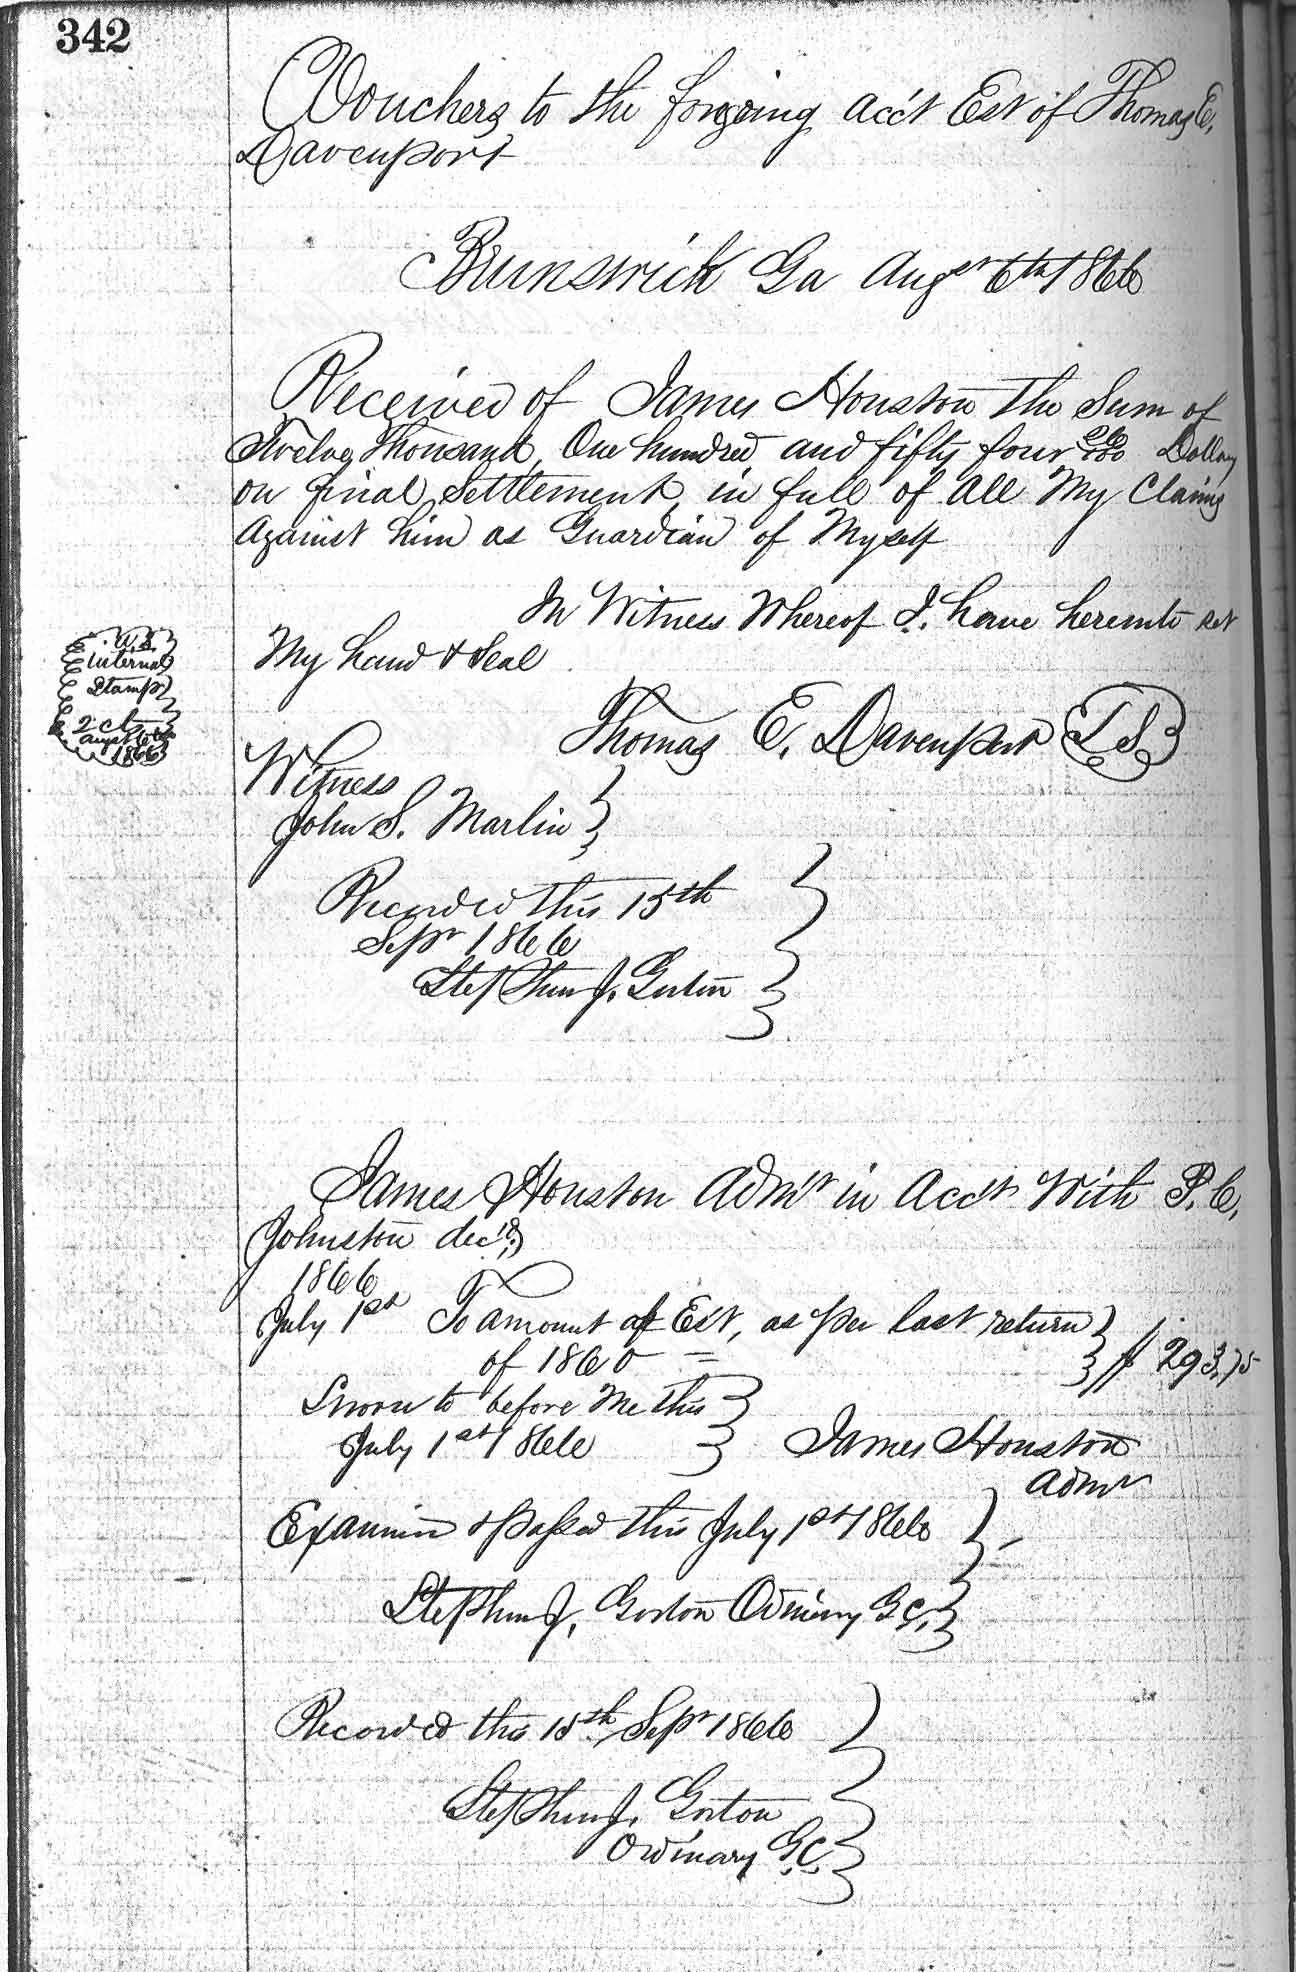 342
Vouchers to the forgoing acc't Est of Thomas E.
Davenport
Brunswick Ga Augst 6th 1866
Received of James Houston the Sum of
Twelve Thousand, One hundred and fifty four 26/100 Dollars
on final Settlement in full of all My Claims
Against him as Guardian of Myself
In Witness Whereof I. have hereunto set
My hand & Seal
U.S.
Internal
Stamp
2 cts
Augst 6th
1866
Thomas E. Davenport L S
Witness
John S. Marlin
Recorded this 15th
Sepr 1866
Stephen J. Gorton
James Houston Adm'r in Acc't With P. C.
Johnston dec'd.
1866
July 1st To amount of Est, as per last return
of 1860 = $ 293.75
Sworn to before Me this
July 1st 1866 James Houston
Admr
Examin & passed this July 1st 1866
Stephen J. Gorton Ordinary G.C.
Recorded this 15th Sepr 1866
Stephen J. Gorton
Ordinary G.C.